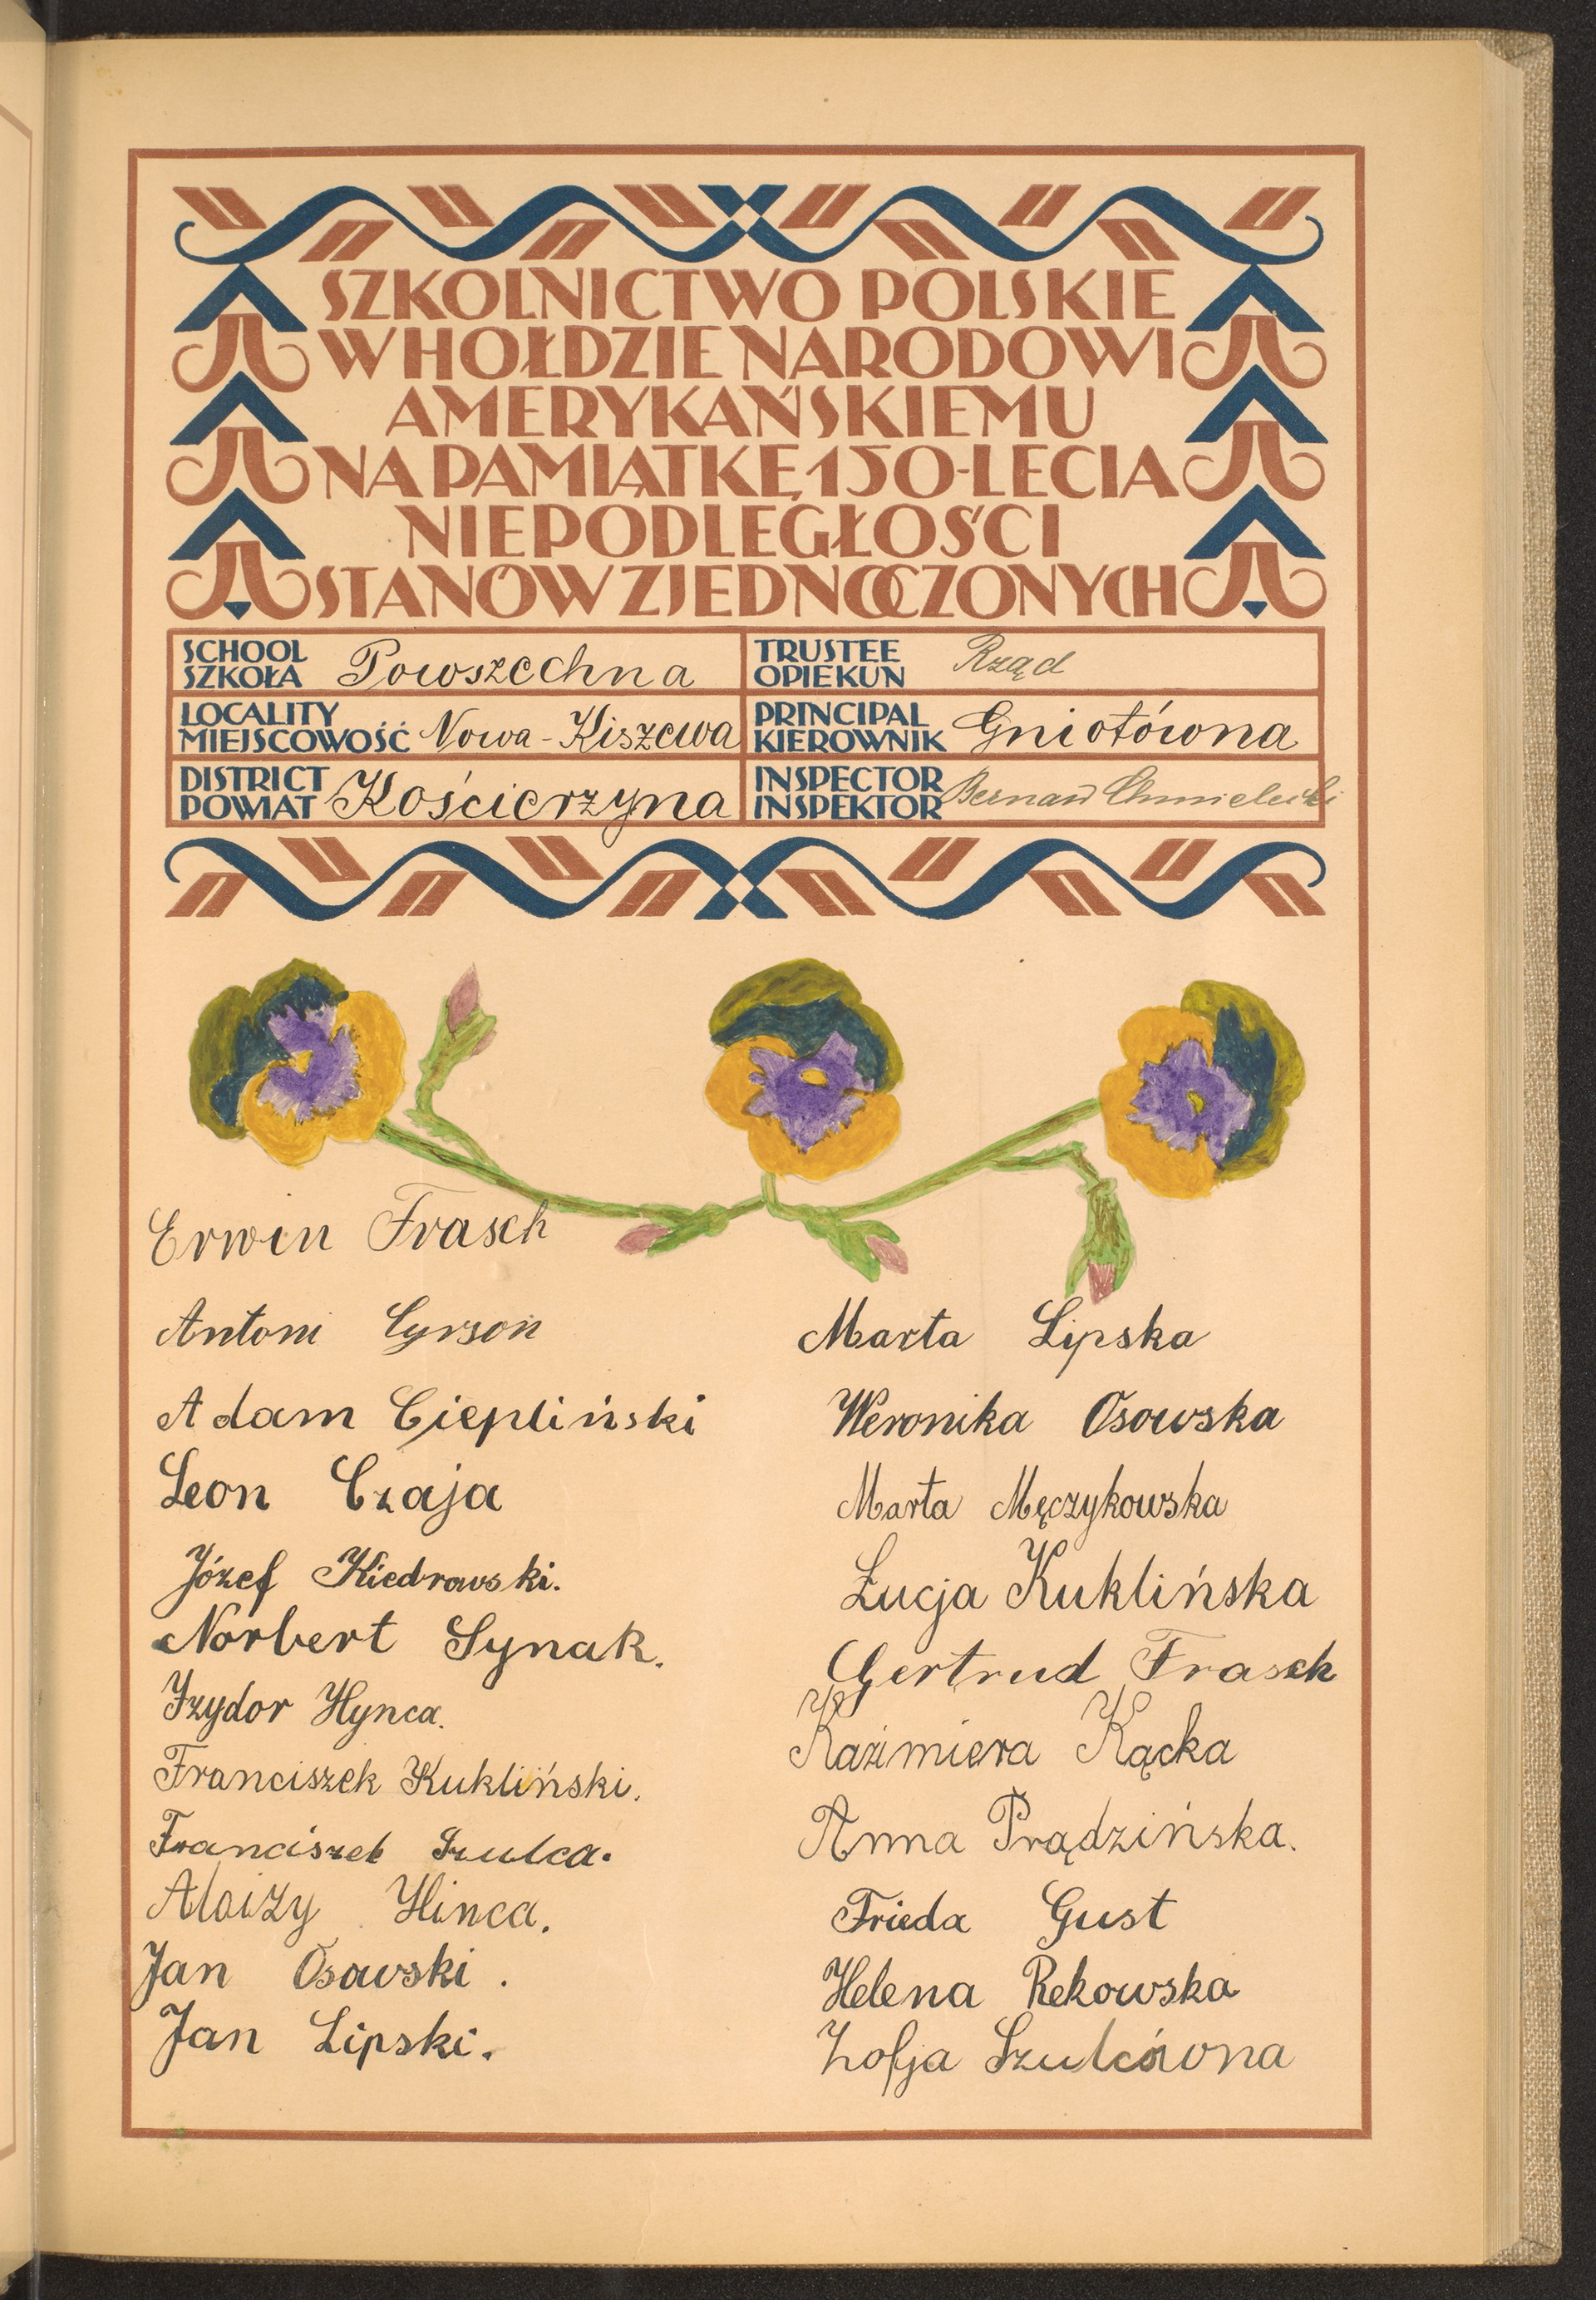 SZKOLNICTWO POLSKIE
W HOŁDZIE NARODOWI
AMERYKAŃSKIEMU
NA PAMIĄTKĘ 150-LECIA
NIEPODLEGŁOŚCI
STANÓW ZJEDNOCZONYCH
SCHOOL
SZKOŁA Powszechna
TRUSTEE
OPIEKUN Rząd
LOCALITY
MIEJSCOWOŚĆ Nowa-Kiszewa
PRINCIPAL
KIEROWNIK Gniotówna
DISTRICT
POWIAT Kościerzyna
INSPECTOR
INSPEKTOR Bernard Chmielecki
Erwin Frasch
Antoni Cyrson
Adam Ciepliński
Leon Czaja
Józef Kiedrowski.
Norbert Synak.
Izydor Hynca.
Franciszek Kukliński.
Franciszek Szulca.
Aloizy Hinca.
Jan Osowski.
Jan Lipski.
Marta Lipska
Weronika Osowska
Marta Męczykowska
Łucja Kuklińska
Gertrud Frasch
Kazimiera Kącka
Anna Prądzińska.
Frieda Gust
Helena Rekowska
Zofja Szulcówna